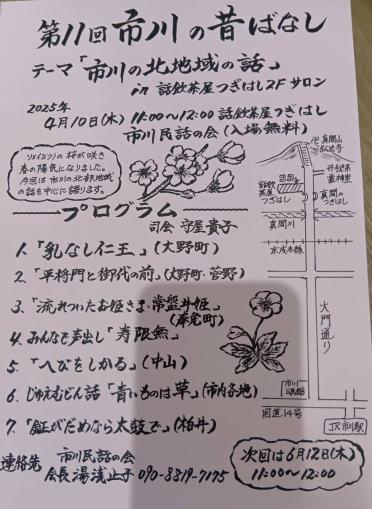 第11回 市川の昔ばなし
テーマ「市川の北地域の話」
in 話飲茶屋つぎはし2F サロン
2025年
4月10日(木) 11:00〜12:00 話飲茶屋つぎはし
市川民話の会 (入場無料)
ソメイヨシノの桜が咲き
春の陽気になりました。
今回は市川の北部地域
の話を中心に語ります。
プログラム
司会 守屋貴子
1.「乳なし仁王」(大野町)
2.「平将門と御代の前」(大野町・菅野)
3.「流れついたお姫さま・常盤井姫」
(奉免町)
4. みんなで声出し「寿限無」
5.「へびをしかる」(中山)
6. じゅえむどん話「青いものは草」(市内各地)
7.「鉦がだめなら太鼓で」(柏井)
連絡先 市川民話の会
会長 湯浅止子 090-8819-7175
卍 真間山
弘法寺
手児奈
霊神堂
話飲
茶屋
つぎはし
真間の
つぎはし
真間川
京成本線
大門通り
市川
国道14号
JR市川駅
次回は6月12日(木)
11:00〜12:00